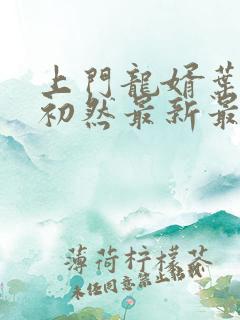 上門龍婿葉
初然最新最
薄荷柠檬茶
未任同意禁止